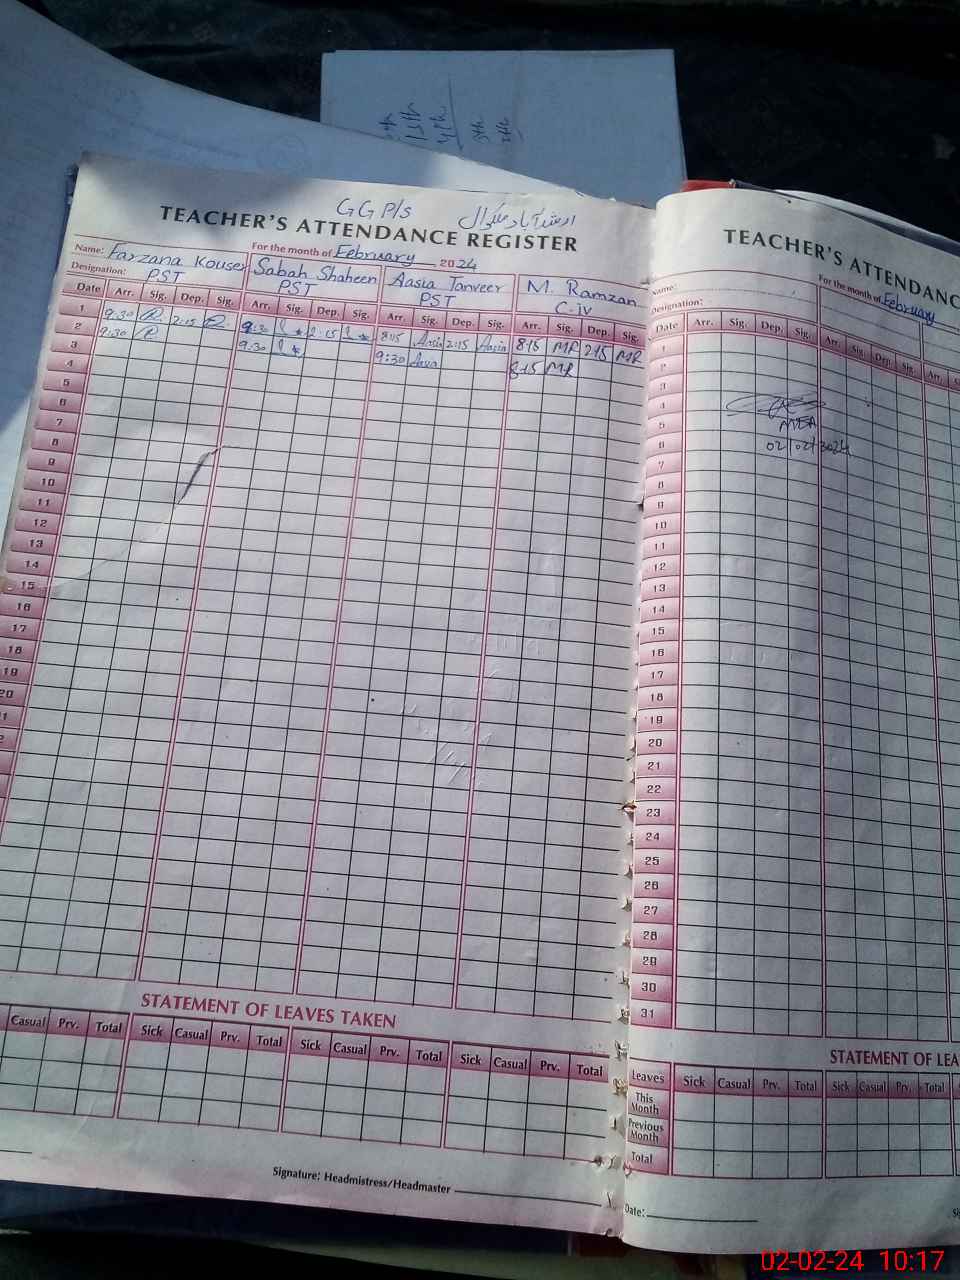 5th
4th
3th
2th
GGP/s ارشد آباد
TEACHER'S ATTENDANCE REGISTER
Name: Farzana Kouser
For the month of February 2024
Sabah Shaheen
Aasia Tanveer
M. Ramzan
Designation: PST
PST
PST
C-iv
Date Arr. Sig. Dep. Sig. Arr. Sig. Dep. Sig. Arr. Sig. Dep. Sig. Arr. Sig. Dep. Sig.
1 9:30 2:15 9:30 2:15 8:15 Aasia 2:15 Aasia 8:15 MR 2:15 MR
2 9:30 9:30 9:30 Aasia 8:15 MR
3
4
5
6
7
8
9
10
11
12
13
14
15
16
17
18
19
20
STATEMENT OF LEAVES TAKEN
Casual Prv. Total Sick Casual Prv. Total Sick Casual Prv. Total Sick Casual Prv. Total
Signature: Headmistress/Headmaster
TEACHER'S ATTENDANC
Name:
For the month of February
Designation:
Date Arr. Sig. Dep. Sig. Arr. Sig. Dep. Sig. Arr.
1
2
3
4
5 MEA
6 02/02/2024
7
8
9
10
11
12
13
14
15
16
17
18
19
20
21
22
23
24
25
26
27
28
29
30
31
STATEMENT OF LEA
Leaves Sick Casual Prv. Total Sick Casual Prv. Total
This Month
Previous Month
Total
Date:
02-02-24 10:17